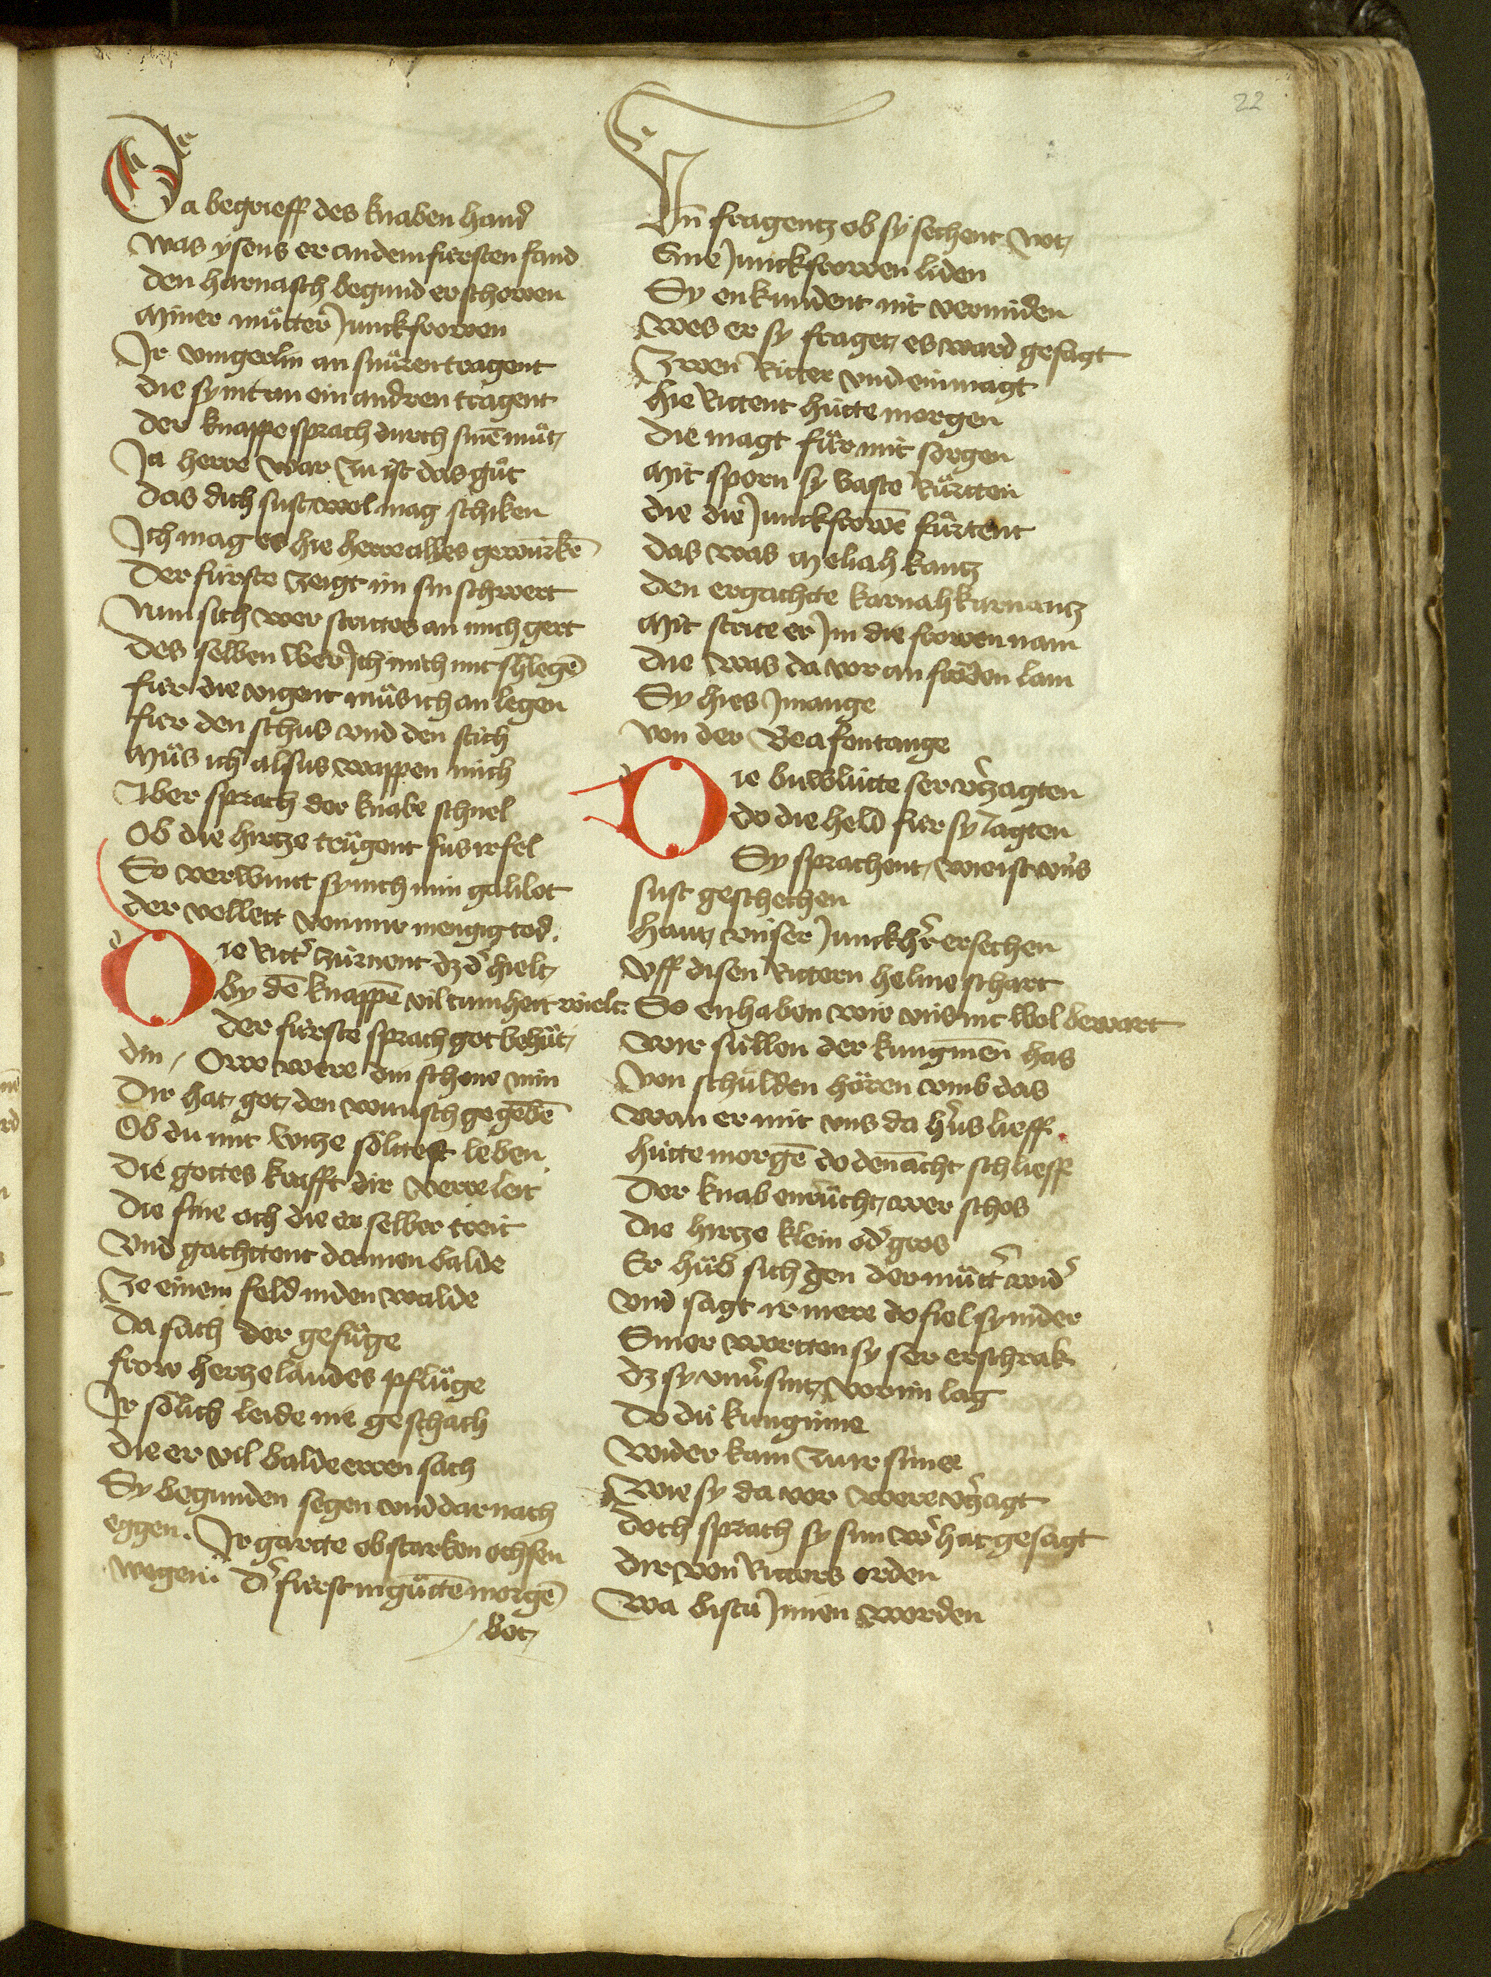 22
Da begrieff des knaben hand
was ysens er an dem fürsten fand
den harnasch begund er schowen
Miner můtter Junckfrowen
Ir vingerlin an snůren tragent
die sy mt an ein andren tragent
der knappe sprach durch sinē můt
Ja herre war zu ist das gůt
das dich sust wol mag schiken
Ich mag es hie herre alles gewürkē
Der fürste zeigt im sin schwert
Nun sich wer strittes an mich gert
des selben wer Ich mich mit schlegē
für die vigent můs ich an legen
für den schus vnd den stich
Můs ich alsus wappen mich
Aber sprach der knabe schnel
Ob die hirtze trůgent sus ir fel
So verwunt sy nich min galilot
der vellett von mir mengig tod.
Die Ritt' zürnent dz d' hielt
by dē knappē vil tumheit wielt
der fürste sprach got behůt
din / Oww were din schone min
Dir hat got den wunsch gegebē
Ob du mit witze sölttest leben
die gottes krafft dir verre leit
die sine och die er selber reit
vnd gachttent dannen balde
Ze einem feld in den walde
Da sach der gefůge
frow hertzelaudes pflůge
Ir sölich leide nie geschach
die er vil balde erren sach
Sy begunden segen vnd dar nach
eggen. Ir gartte ob starken ochsen
wegen: d' fürst in gůttē morgē
bot
Vn̄ fragentz ob sy sechent not
Sine Junckfrowen liden
Sy enkundent nit vermiden
wes er sy fraget es ward gesagt
Zwen Ritter vnd ein magt
hie Rittent hütte morgen
die magt fůr mit sorgen
Mit sporn sy vaste růrtten
die die Junckfrowē fůrtent
das was Meliahkantz
den ergachtte karnahkarnantz
Mit strite er Im die frowen nam
die was da vor an fröden lam
Sy hies Jmange
von der Beafontange
Die buwlütte ser v'zagten
do die held für sy Jagten
Sy sprachent wie ist vn̄s
sust geschechen
hant vnser Junckh'r ersechen
vff disen Rittern helme schart
So enhaben wir vns nit wol bewart
wir süllen der küngineñ has
von schulden hören vmb das
wan er mit vns da h'us lieff.
hütte morgē do denācht schlieff
Der knab enrůcht wer schos
die hirtze klein od' gros
Er hůb sich gen der můtt' wid'
vnd sagt ir mere do fiel sy nider
Siner wortten sy ser erschrak
dz sy vnv'sint vor im lag
Do dü künginne
wider kam zu ir sinne
wie sy da vor were v'zagt
Doch sprach sy sun w' hat gesagt
dir von Ritters orden
wa bistu Jnnen worden